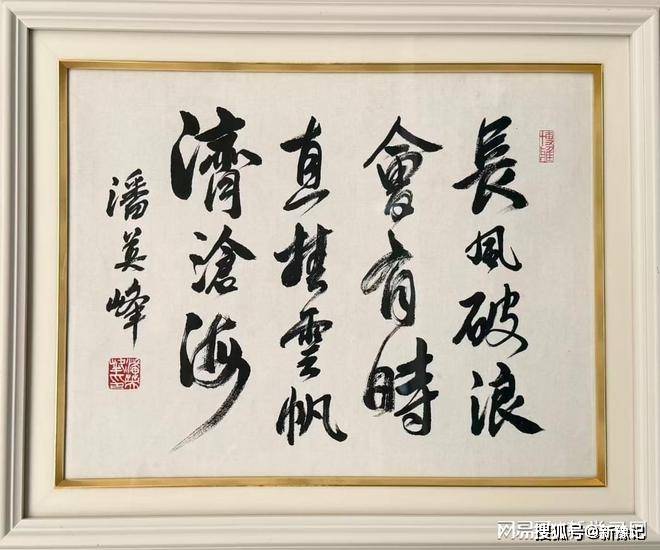 長風破浪
會有時
直掛雲帆
濟滄海
潘英峰
搜狐号@新豫记